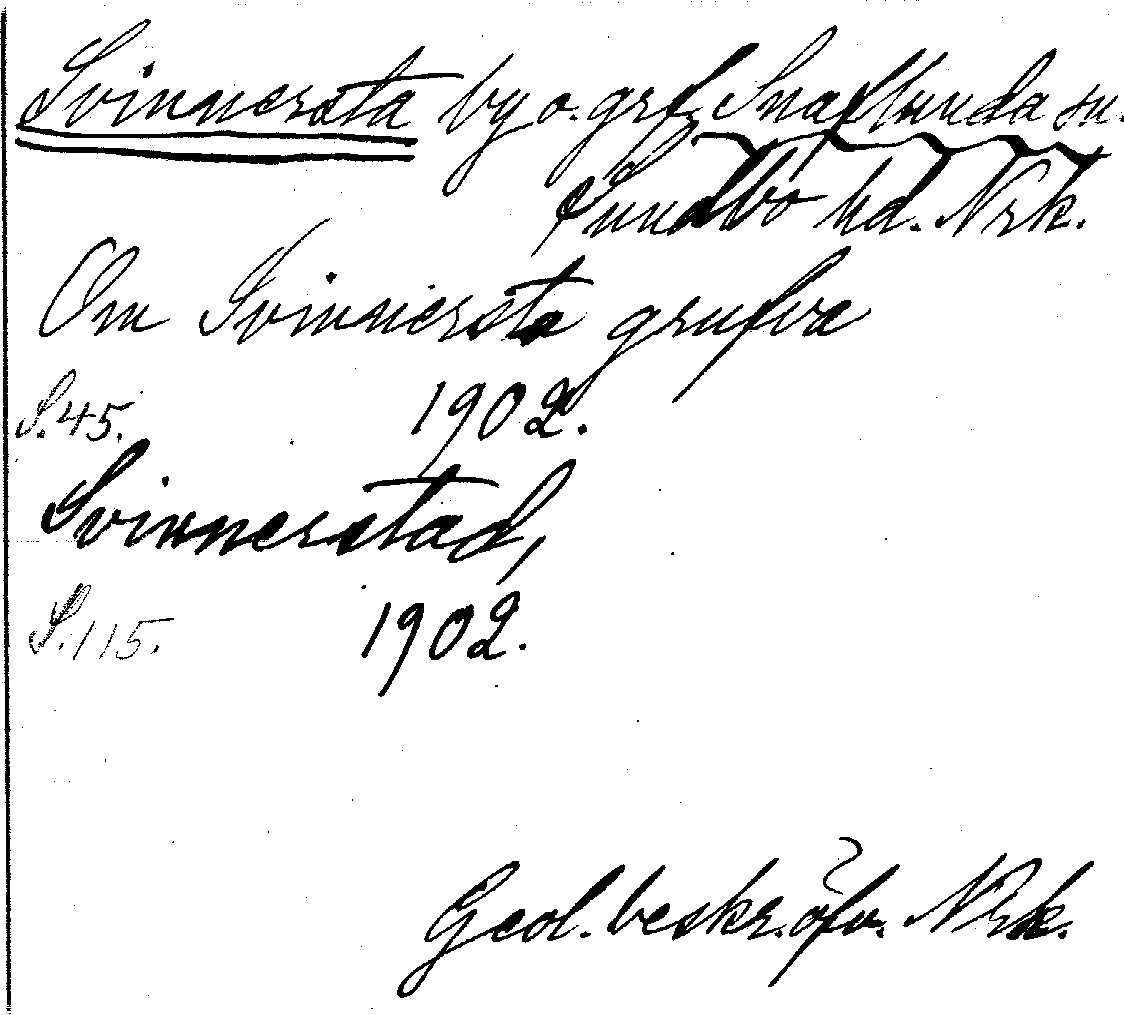 Svinnersta by o. grf, Snaflunda sn.
Sundbo hd. Nrk.
Om Svinnersta grufva
S. 45. 1902.
Svinnerstad,
S. 115. 1902.
Geol. beskr. öfv. Nrk.